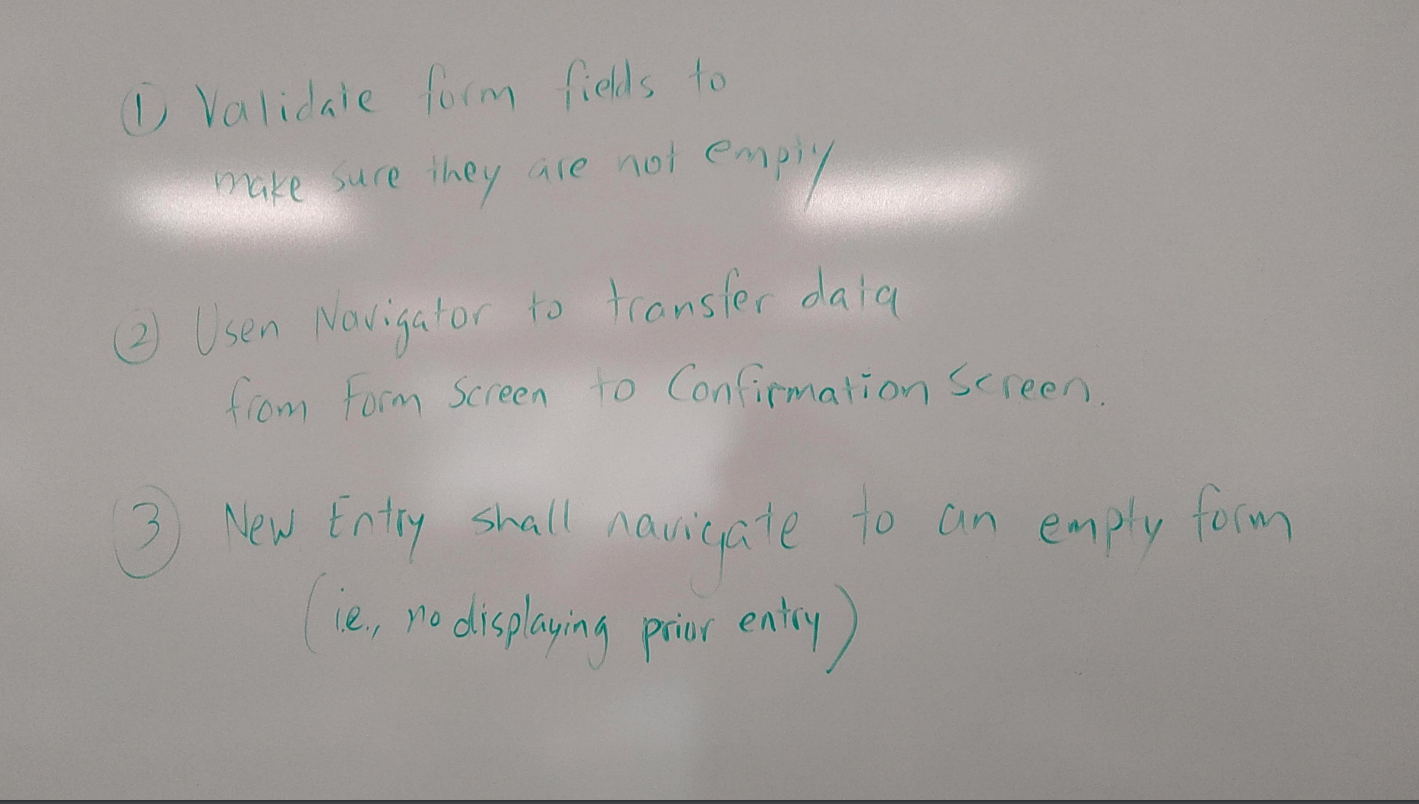 ① Validate form fields to
make sure they are not empty
② Usen Navigator to transfer data
from Form Screen to Confirmation Screen.
③ New Entry shall navigate to an empty form
(i.e., no displaying prior entry)